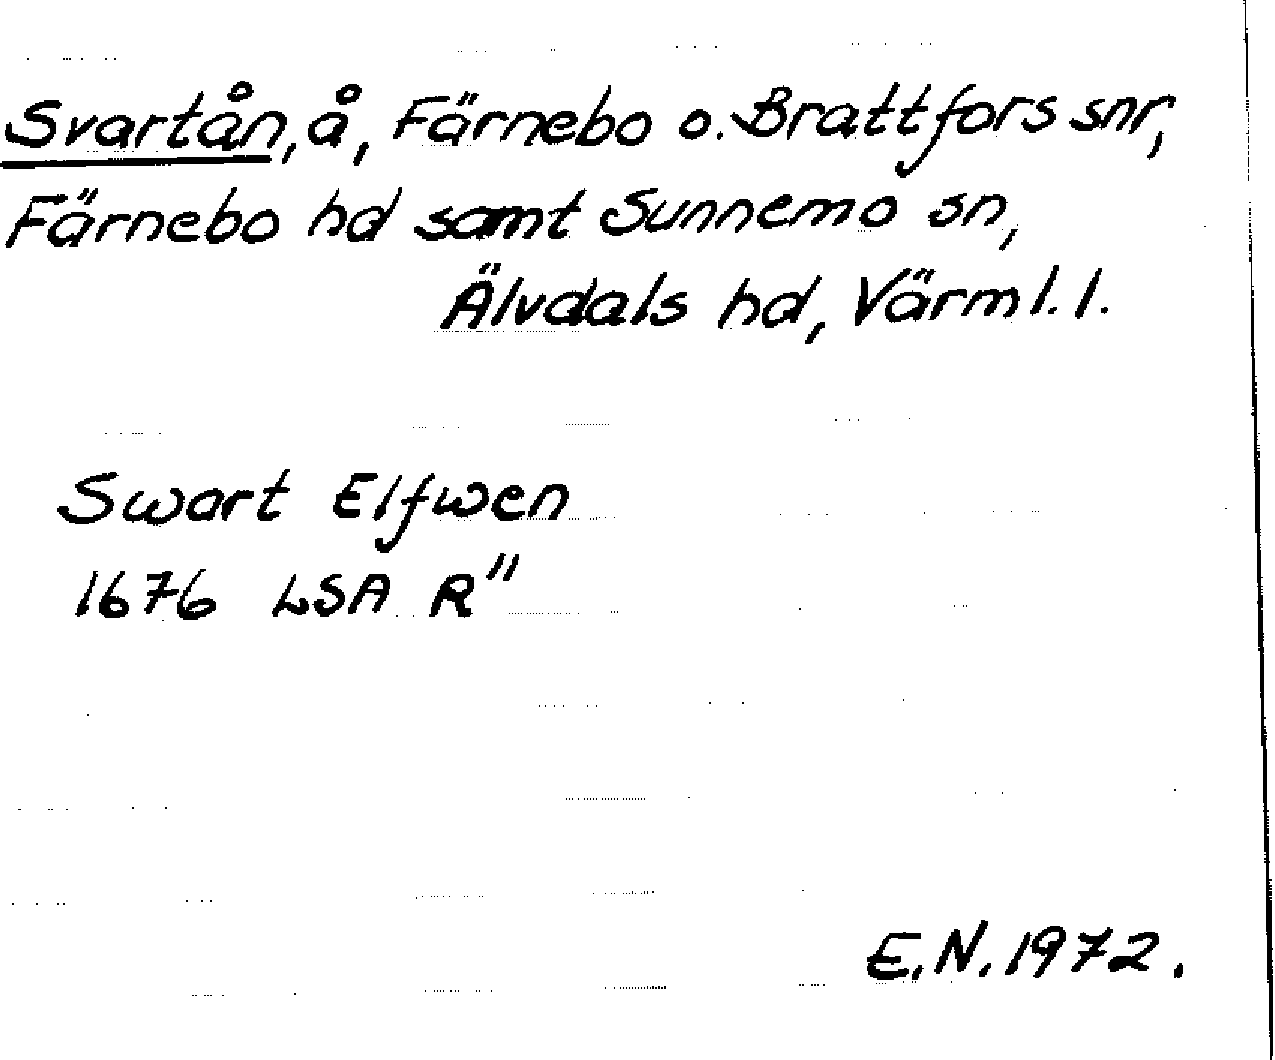 Svartån, å, Färnebo o. Brattfors snr,
Färnebo hd samt Sunnemo sn,
Älvdals hd, Värml. l.
Swart Elfwen
1676 LSA R"
E.N. 1972.